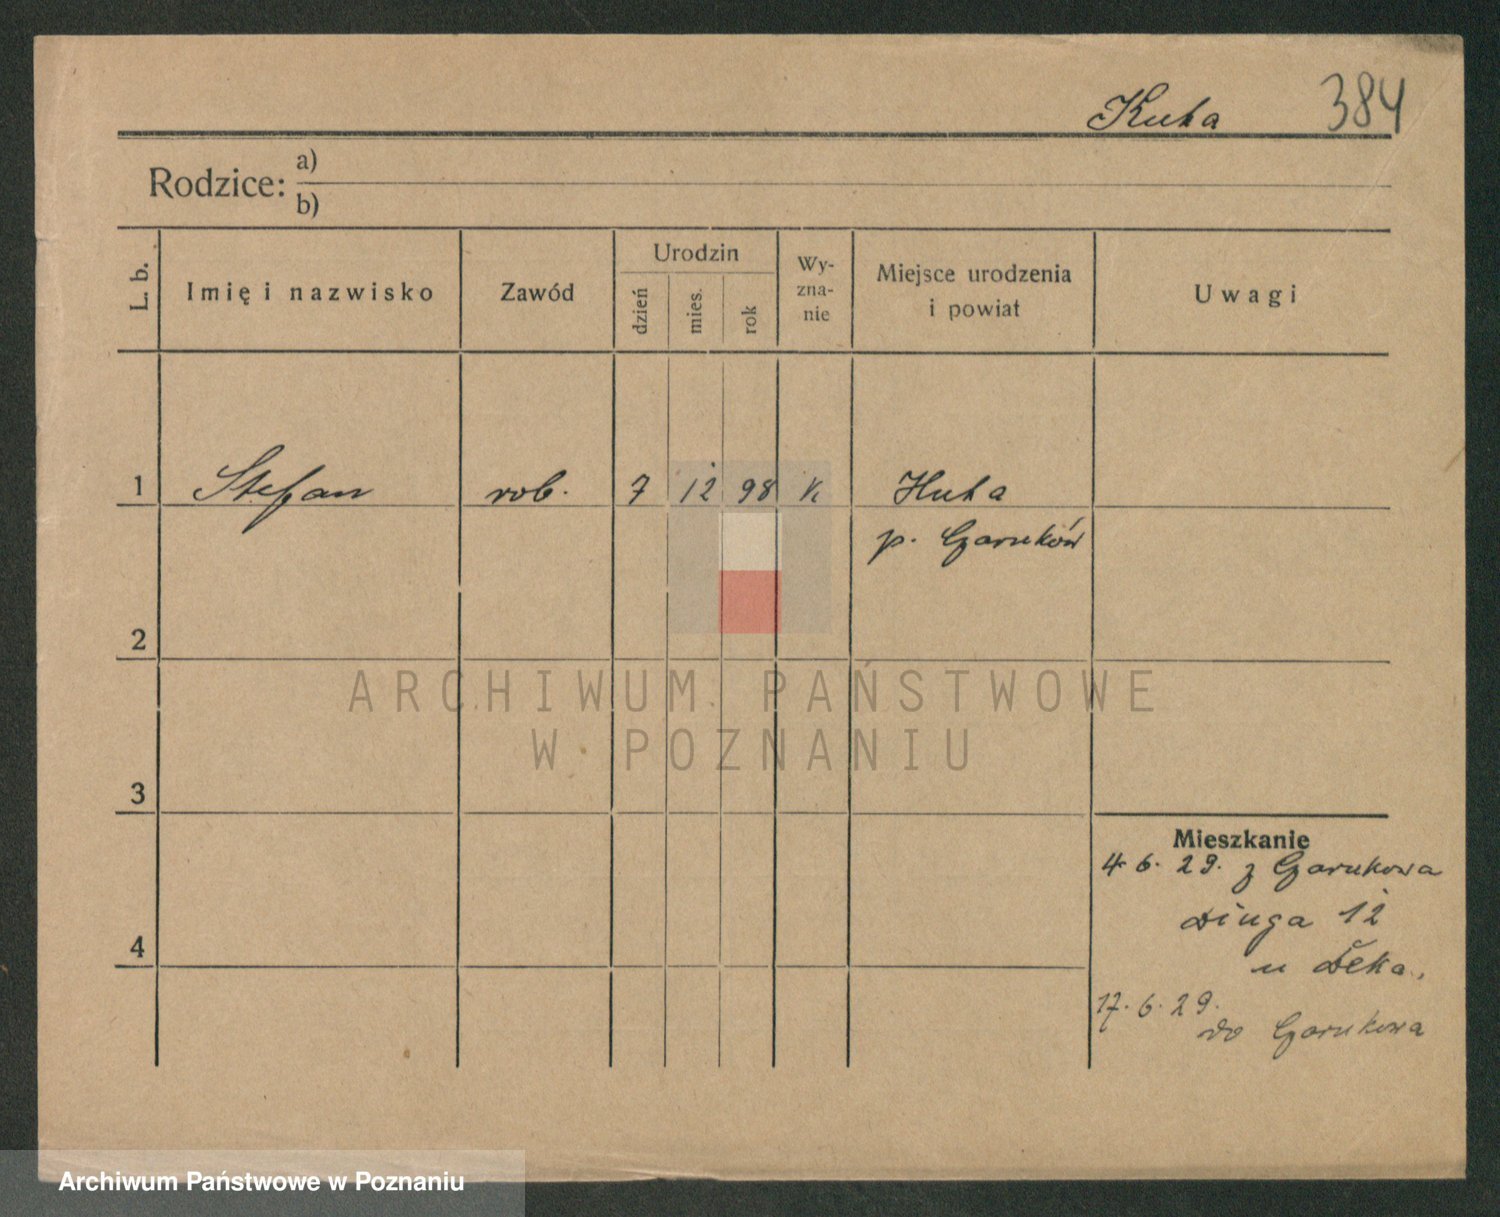 Kuta 384
Rodzice: a)
b)
L. b. Imię i nazwisko Zawód Urodzin dzień mies. rok Wy-zna-nie Miejsce urodzenia i powiat Uwagi
1 Stefan rob. 7 12 98 k Huta
p. Czarnków
2
ARCHIWUM PAŃSTWOWE
W POZNANIU
3
Mieszkanie
4 6. 29. z Czarnkowa
Długa 12
4
u
17. 6. 29.
do Czarnkowa
Archiwum Państwowe w Poznaniu